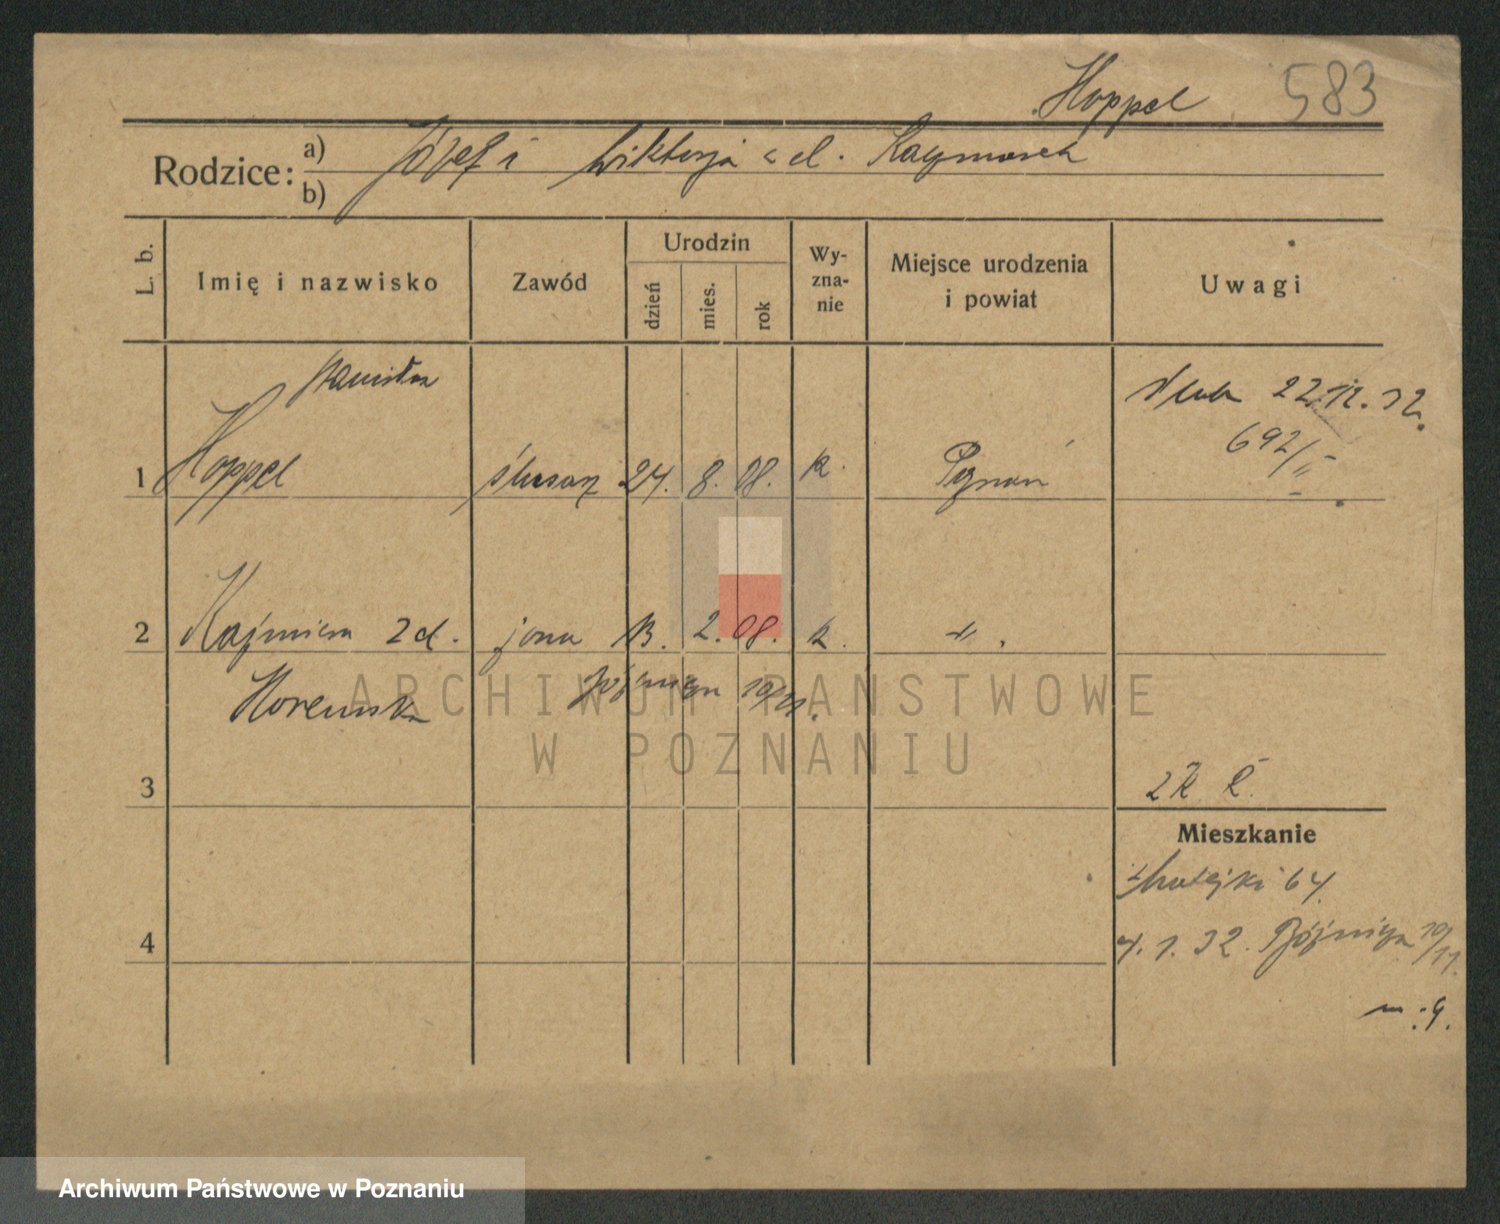 Hoppel 583
Rodzice: a) Józef i Wiktorja z d. Kaczmarek
b)
L. b. Imię i nazwisko Zawód Urodzin dzień mies. rok Wy-zna-nie Miejsce urodzenia i powiat Uwagi
Stanisław
ślub 22.12.32.
692/II
1 Hoppel ślusarz 24. 8. 08. k. Poznań
2 Kazimiera z d. żona 13. 2. 08. k. -"-.
Różniecka 10/11.
ARCHIWUM PAŃSTWOWE
W POZNANIU
3
Mieszkanie
Matejki 64
4 4. 1. 32. 10/11.
m. 9.
Archiwum Państwowe w Poznaniu